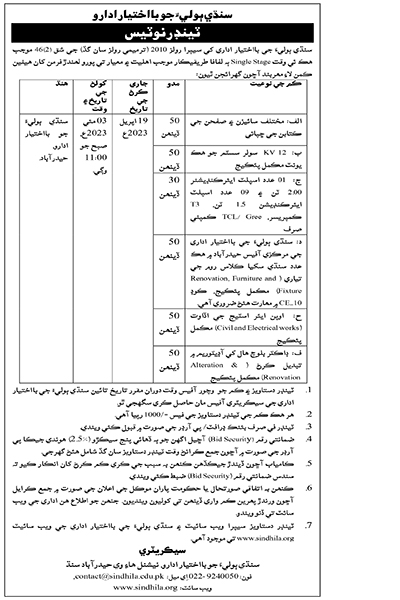 سنڌي ٻوليءَ جو بااختيار ادارو
ٽينڊر نوٽيس
سنڌي ٻوليءَ جي بااختيار اداري کي سيپرا رولز 2010 (ترميمي رولز سان گڏ) جي شق (2)46 موجب
هڪ ئي وقت Single Stage ٻه لفافا طريقيڪار موجب اهليت ۽ معيار تي پورو لهندڙ فرمن کان هيٺين
ڪمن لاءِ مهربند آڇون گهرائجن ٿيون:
ڪم جي نوعيت
مدو
جاري ڪرڻ جي تاريخ
کولڻ جي تاريخ ۽ وقت
هنڌ
الف: مختلف سائيزن ۽ صفحن جي ڪتابن جي ڇپائي
50 ڏينهن
19 اپريل 2023ع
03 مئي 2023ع، صبح جو 11:00 وڳي.
سنڌي ٻوليءَ جو بااختيار ادارو، حيدرآباد.
ب: 12 KV سولر سسٽم جو هڪ يونٽ مڪمل پئڪيج
50 ڏينهن
ج: 01 عدد اسپلٽ ايئرڪنڊيشنر
2.00 ٽن ۽ 09 عدد اسپلٽ
ايئرڪنڊيشن 1.5 ٽن، T3
ڪمپريسر، TCL/ Gree ڪمپني
صرف
30 ڏينهن
د: سنڌي ٻوليءَ جي بااختيار اداري
جي مرڪزي آفيس حيدرآباد ۾ هڪ
عدد سنڌي سکيا ڪلاس روم جي
تياري (Renovation, Furniture and
Fixture) مڪمل پئڪيج، ڪوڊ
CE_10 ۾ مهارت هئڻ ضروري آهي.
50 ڏينهن
ح: اوپن ايئر اسٽيج جي اڏاوت
(Civil and Electrical works) مڪمل
پئڪيج
50 ڏينهن
ف: ڊاڪٽر بلوچ هال کي آڊيٽوريم ۾
تبديل ڪرڻ (Alteration &
Renovation) مڪمل پئڪيج
50 ڏينهن
1. ٽينڊر دستاويز ۽ ڪم جو وچور آفيس وقت دوران مقرر تاريخ تائين سنڌي ٻوليءَ جي بااختيار
اداري جي سيڪريٽري آفيس مان حاصل ڪري سگهجي ٿو.
2. هر هڪ ڪم جي ٽينڊر دستاويز جي فيس =/1000 رپيا آهي.
3. ٽينڊر في صرف بئنڪ ڊرافٽ/ پي آرڊر جي صورت ۾ قبول ڪئي ويندي.
4. ضمانتي رقم (Bid Security) آڇيل اگهن جو به ڍائي پنج سيڪڙو (2.5٪) هوندي جيڪا پي
آرڊر جي صورت ۾ آڇون جمع ڪرائڻ وقت ٽينڊر دستاويز سان گڏ شامل هئڻ گهرجي.
5. ڪامياب آڇون ڏيندڙ جيڪڏهن ڪنهن به سبب جي ڪري ڪم ڪرڻ کان انڪار ڪيو ته
سندس ضمانتي رقم (Bid Security) ضبط ڪئي ويندي.
6. ڪنهن به اتفاقي صورتحال يا حڪومت پاران موڪل جي اعلان جي صورت ۾ جمع ڪرايل
آڇون ورندڙ ٻهرين ڪم واري ڏينهن تي کوليون وينديون. جنهن جو اطلاع هن اداري جي ويب
سائيٽ تي ڏنو ويندو.
7. ٽينڊر دستاويز سيپرا ويب سائيٽ ۽ سنڌي ٻوليءَ جي بااختيار اداري جي ويب سائيٽ
www.sindhila.org تي موجود آهي.
سيڪريٽري
سنڌي ٻوليءَ جو بااختيار ادارو نيشنل هاءِ وي حيدرآباد سنڌ
فون: 022-9240050 اي ميل: contact@sindhila.edu.pk،
ويب سائيٽ: www.sindhila.org